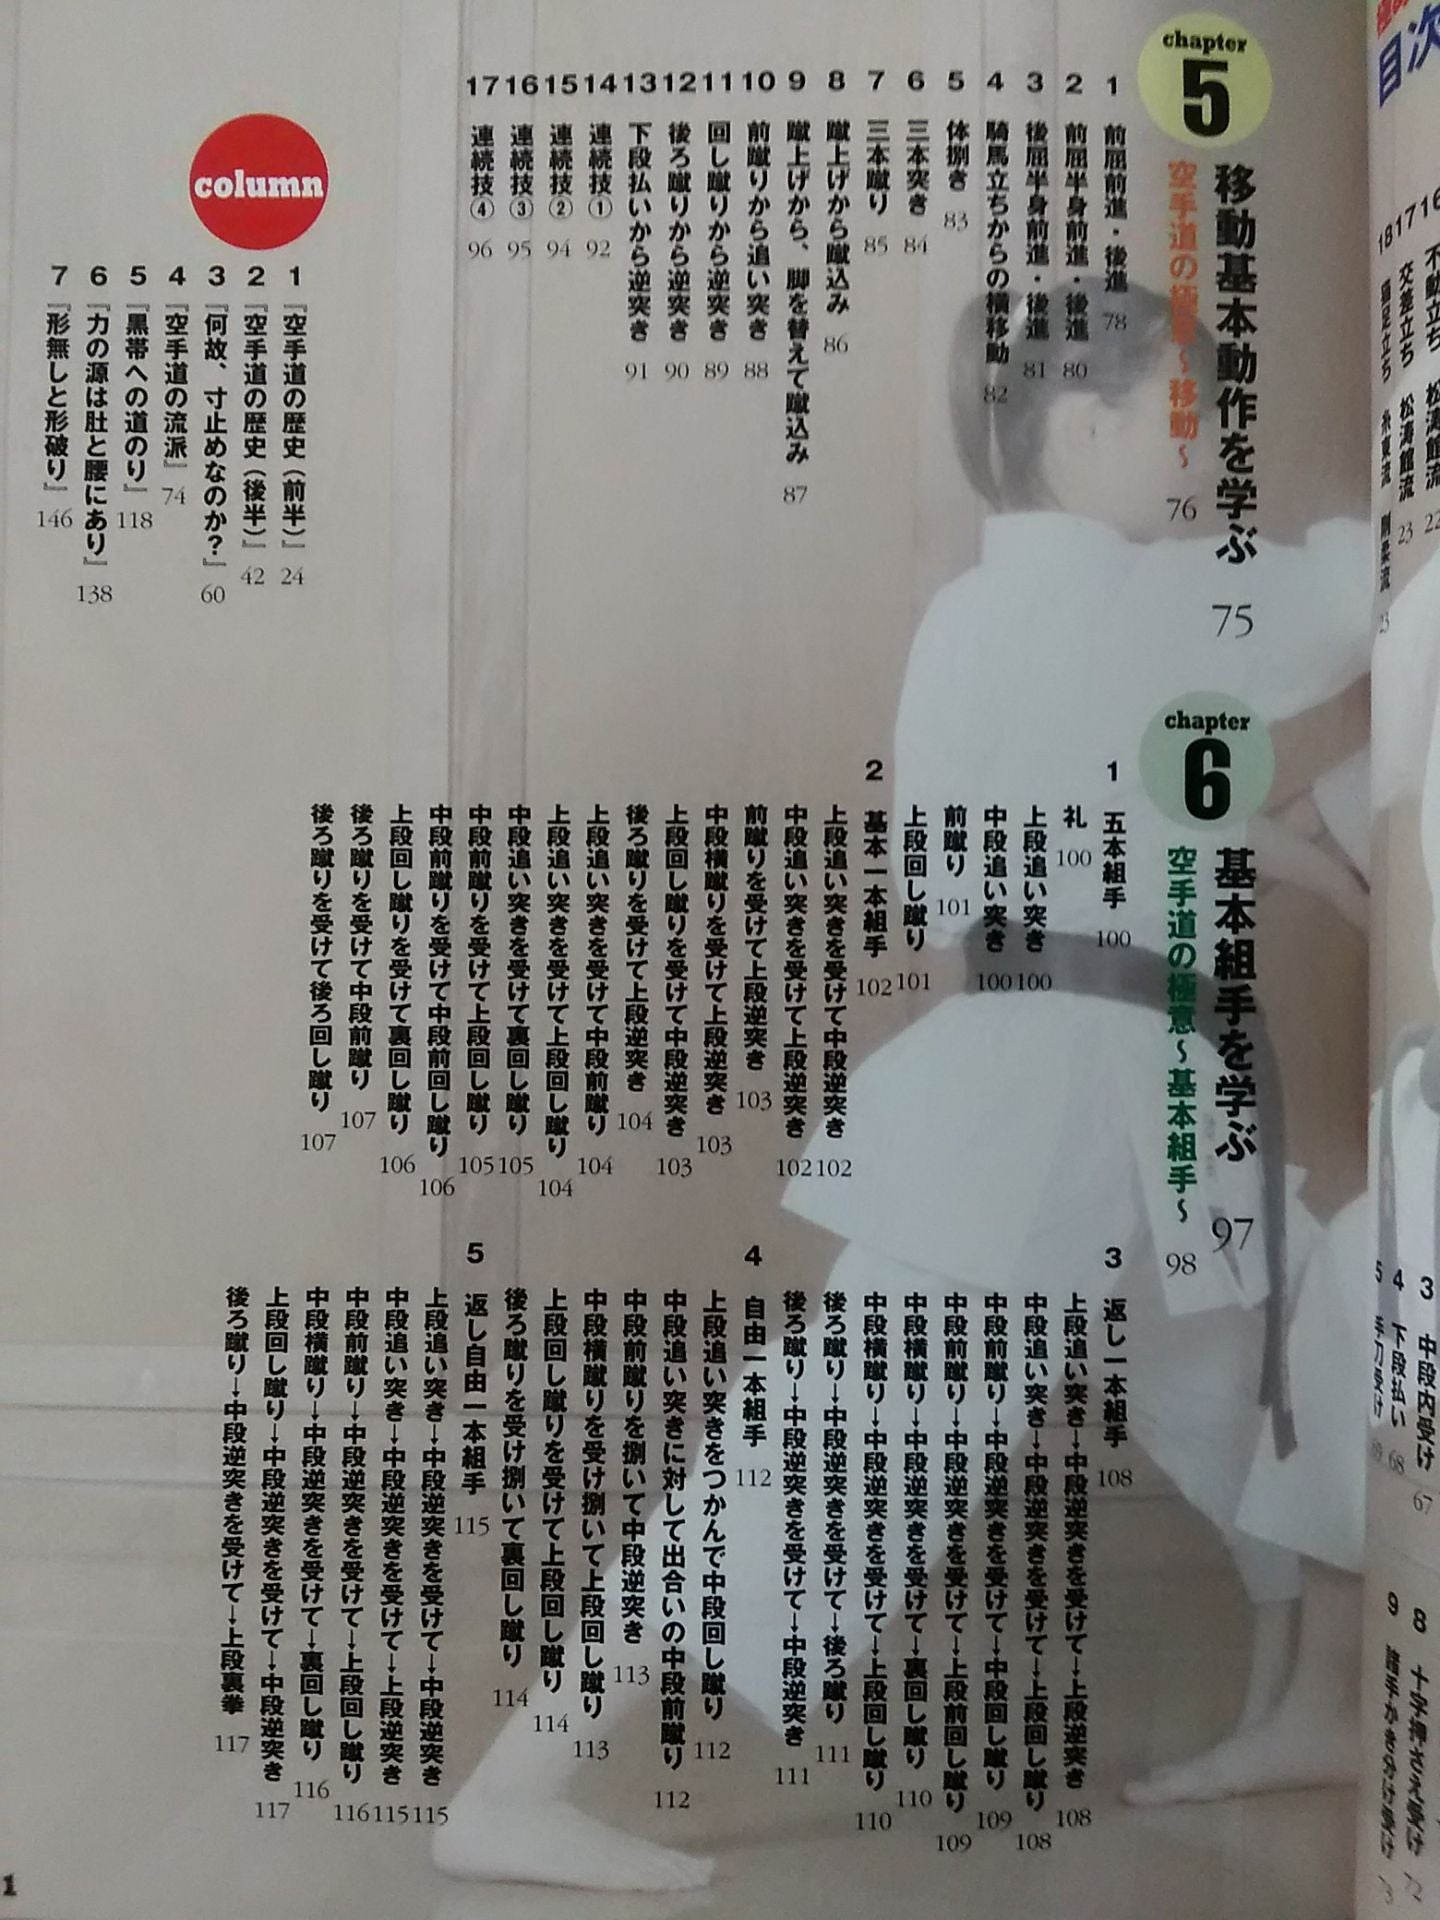 目次
16 不動立ち 松涛館流 22
17 交差立ち 松涛館流 23
18 猫足立ち 糸東流 剛柔流 23
3 中段内受け 67
4 下段払い 68
5 手刀受け 69
8 十字押さえ受け 72
9 諸手かき分け受け 73
chapter 5
移動基本動作を学ぶ 75
空手道の極意〜移動〜 76
1 前屈前進・後進 78
2 前屈半身前進・後進 80
3 後屈半身前進・後進 81
4 騎馬立ちからの横移動 82
5 体捌き 83
6 三本突き 84
7 三本蹴り 85
8 蹴上げから蹴込み 86
9 蹴上げから、脚を替えて蹴込み 87
10 前蹴りから追い突き 88
11 回し蹴りから逆突き 89
12 後ろ蹴りから逆突き 90
13 下段払いから逆突き 91
14 連続技① 92
15 連続技② 94
16 連続技③ 95
17 連続技④ 96
column
1 『空手道の歴史（前半）』 24
2 『空手道の歴史（後半）』 42
3 『何故、寸止めなのか？』 60
4 『空手道の流派』 74
5 『黒帯への道のり』 118
6 『力の源は肚と腰にあり』 138
7 『形無しと形破り』 146
chapter 6
基本組手を学ぶ 97
空手道の極意〜基本組手〜 98
1 五本組手 100
礼 100
上段追い突き 100
中段追い突き 100
前蹴り 101
上段回し蹴り 101
2 基本一本組手 102
上段追い突きを受けて中段逆突き 102
中段追い突きを受けて上段逆突き 102
前蹴りを受けて上段逆突き 103
中段横蹴りを受けて上段逆突き 103
上段回し蹴りを受けて中段逆突き 103
後ろ蹴りを受けて上段逆突き 104
上段追い突きを受けて中段前蹴り 104
上段追い突きを受けて上段回し蹴り 104
中段追い突きを受けて裏回し蹴り 105
中段前蹴りを受けて上段回し蹴り 105
中段前蹴りを受けて中段前回し蹴り 106
上段回し蹴りを受けて裏回し蹴り 106
後ろ蹴りを受けて中段前蹴り 107
後ろ蹴りを受けて後ろ回し蹴り 107
3 返し一本組手 108
上段追い突き→中段逆突きを受けて→上段逆突き 108
中段追い突き→中段逆突きを受けて→上段回し蹴り 108
中段前蹴り→中段逆突きを受けて→中段回し蹴り 109
中段前蹴り→中段逆突きを受けて→上段前回し蹴り 109
中段横蹴り→中段逆突きを受けて→裏回し蹴り 110
中段横蹴り→中段逆突きを受けて→上段回し蹴り 110
後ろ蹴り→中段逆突きを受けて→後ろ蹴り 111
後ろ蹴り→中段逆突きを受けて→中段逆突き 111
4 自由一本組手 112
上段追い突きをつかんで中段回し蹴り 112
中段追い突きに対して出合いの中段前蹴り 112
中段前蹴りを捌いて中段逆突き 113
中段横蹴りを受け捌いて上段回し蹴り 113
上段回し蹴りを受けて上段回し蹴り 114
後ろ蹴りを受け捌いて裏回し蹴り 114
5 返し自由一本組手 115
上段追い突き→中段逆突きを受けて→中段逆突き 115
中段追い突き→中段逆突きを受けて→上段逆突き 115
中段前蹴り→中段逆突きを受けて→上段回し蹴り 116
中段横蹴り→中段逆突きを受けて→裏回し蹴り 116
上段回し蹴り→中段逆突きを受けて→中段逆突き 117
後ろ蹴り→中段逆突きを受けて→上段裏拳 117
1